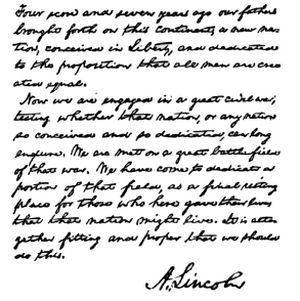 Four score and seven years ago our fathers
brought forth on this continent, a new na-
tion, conceived in Liberty, and dedicated
to the proposition that all men are cre-
ated equal.
Now we are engaged in a great civil war,
testing whether that nation, or any nation
so conceived and so dedicated, can long
endure. We are met on a great battlefield
of that war. We have come to dedicate a
portion of that field, as a final resting
place for those who here gave their lives
that that nation might live. It is alto-
gether fitting and proper that we should
do this.
A. Lincoln